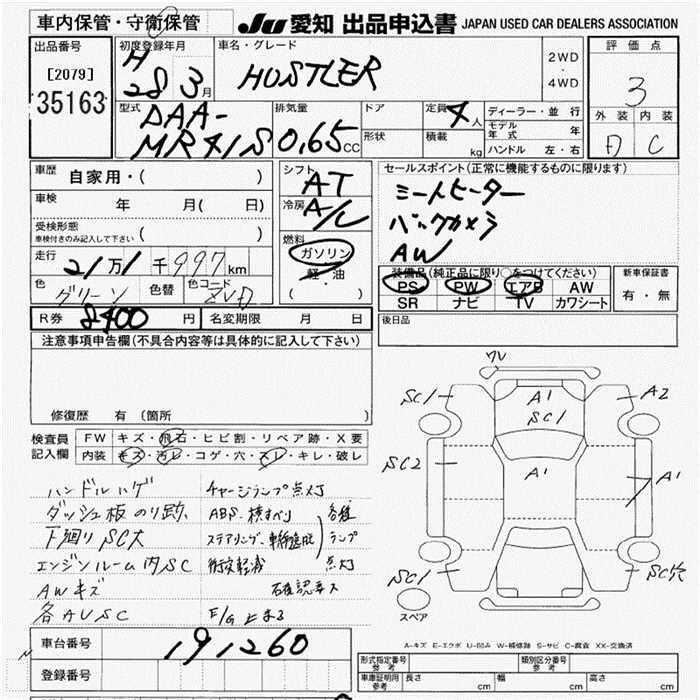 車内保管・守衛保管
JU 愛知 出品申込書 JAPAN USED CAR DEALERS ASSOCIATION
出品番号
[2079]
35163
初度登録年月
H
28 3月
車名・グレード
HUSTLER
2WD
・
4WD
評価点
3
外装 内装
A C
型式
DAA-
MR41S
排気量
0.65CC
ドア
形状
定員 4人
積載 kg
ディーラー・並行
モデル年式 年
ハンドル 左・右
車歴 自家用・( )
車検 年 月( 日)
受検形態
車検付きのみ記入して下さい ( )
走行 21万1千997km
色 グリーン
色替
色コード ZVD
R券 8400円
名変期限 月 日
シフト AT
冷房 A/C
燃料
ガソリン
軽・油
( )
セールスポイント(正常に機能するものに限ります)
シートヒーター
バックカメラ
AW
装備品(純正品に限り○をつけてください)
PS PW エアB AW
SR ナビ TV カワシート
新車保証書
有・無
後日品
注意事項申告欄(不具合内容等は具体的に記入して下さい)
修復歴 有(箇所 )
検査員記入欄
FW キズ・飛石・ヒビ割・リペア跡・X要
内装 キズ・汚レ・コゲ・穴・スレ・キレ・破レ
ハンドルハゲ
ダッシュ板のり跡
下廻りSC大
エンジンルーム内SC
AWキズ
各AUSC
チャージランプ点灯
ABS・横すべり
ステアリング、車線逸脱
衝突軽減
各種
ランプ
点灯
確認要ス
E/G止まる
ワレ
SC1
A1
SC1
A2
SC2
A1
A1
SC1
SC穴
スペア
A-キズ E-エクボ U-凹み W-補修跡 S-サビ C-腐食 XX-交換済
車台番号 191260
登録番号
型式指定番号
参考
類別区分番号
参考
車庫証明用
参考
長さ cm
幅 cm
高さ cm